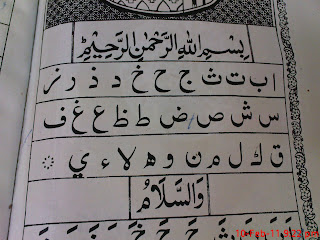 بِسْمِ اللهِ الرَّحْمٰنِ الرَّحِيْمِ
ا ب ت ث ج ح خ د ذ ر ز
س ش ص ض ط ظ ع غ ف
ق ك ل م ن و ه لا ء ي
وَالسَّلَامُ